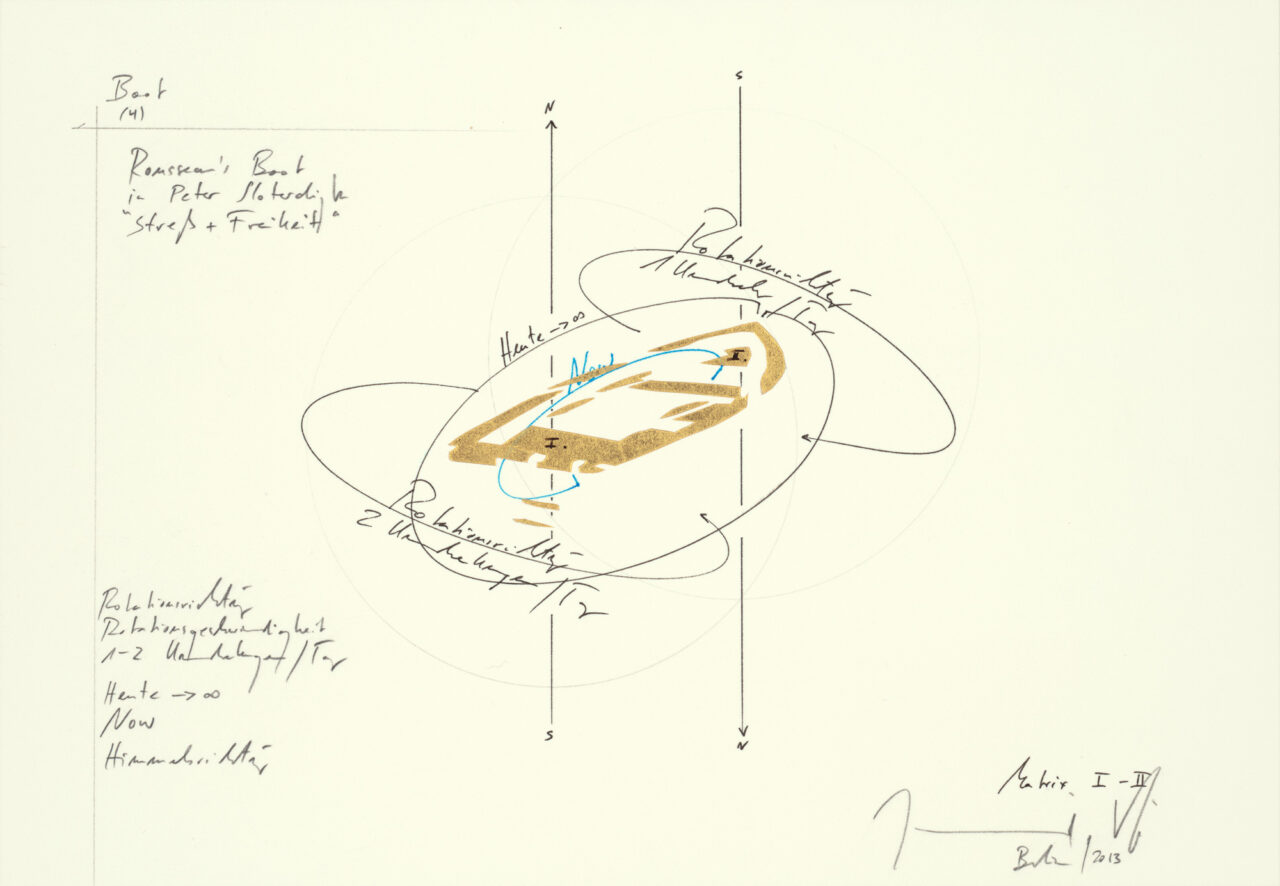 Boot
(4)
Rousseau's Boot
in Peter Sloterdijk
"Streß + Freiheit"
N
S
Rotationsrichtung
1 Umdrehung/Tag
Heute → ∞
Now
I.
I.
Rotationsrichtung
2 Umdrehungen/Tag
S
N
Rotationsrichtung
Rotationsgeschwindigkeit
1-2 Umdrehungen/Tag
Heute → ∞
Now
Himmelsrichtung
Matrix. I - IV
Berlin/2013